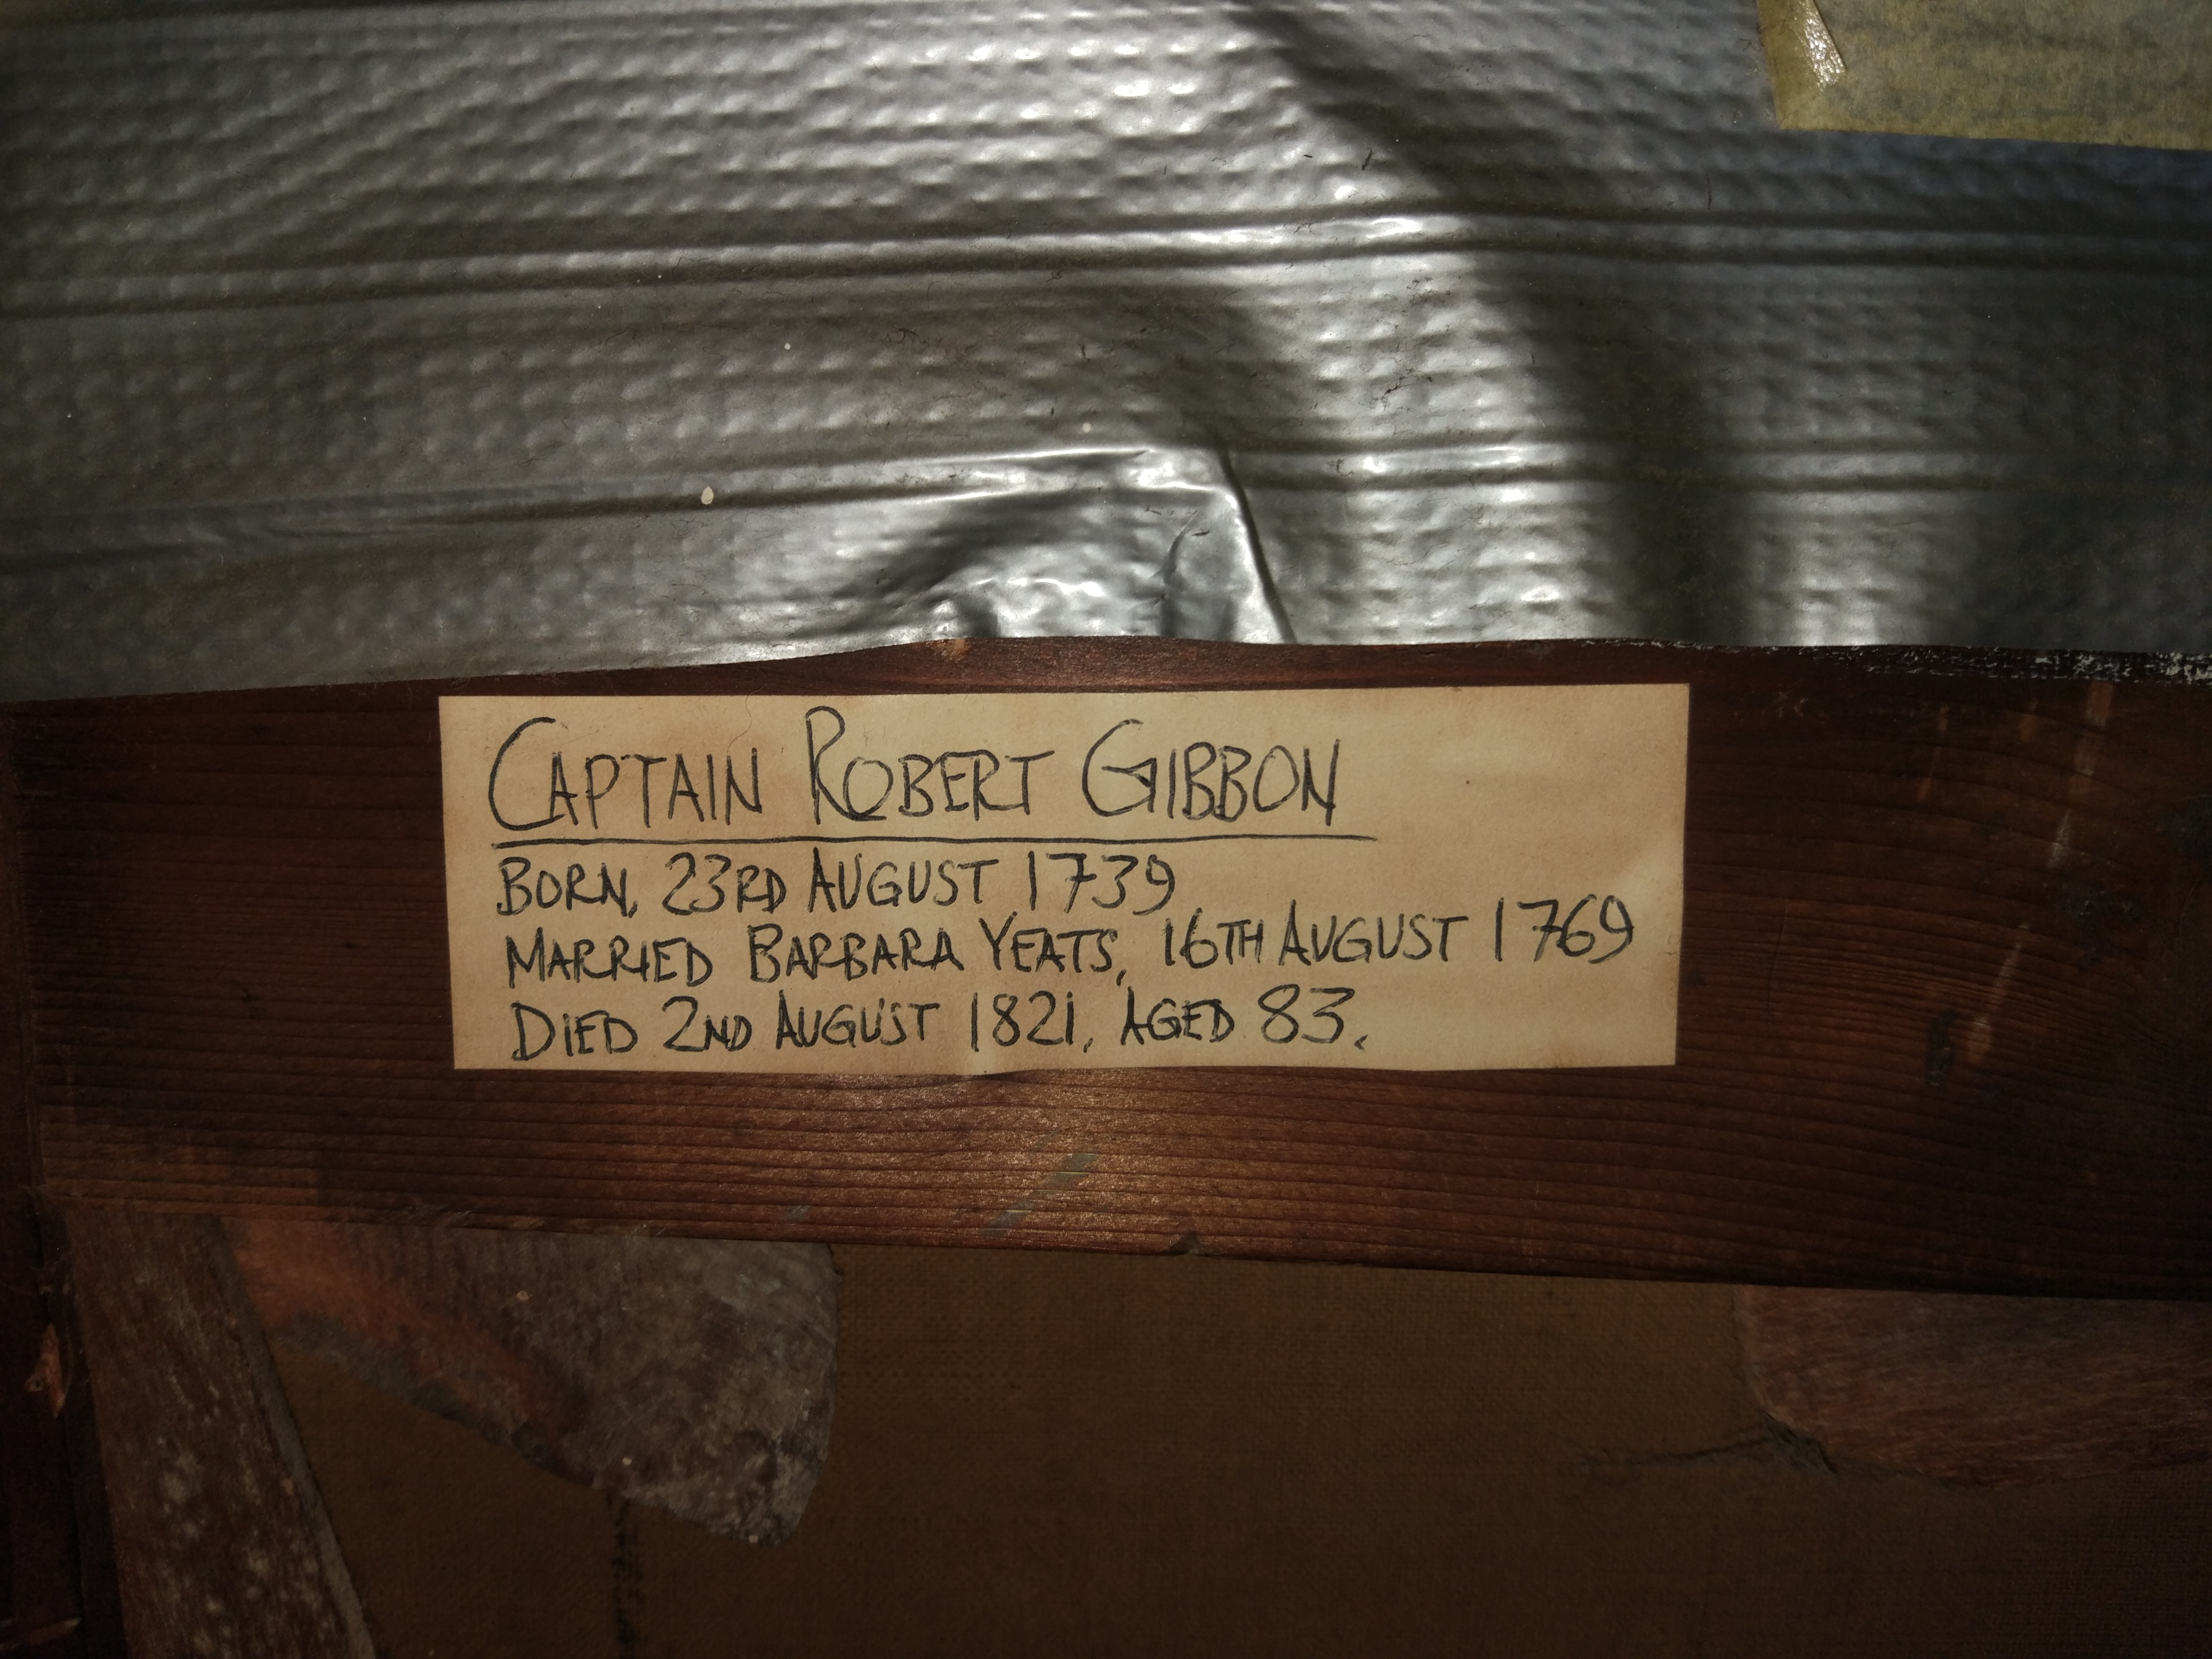 CAPTAIN ROBERT GIBBON
BORN, 23RD AUGUST 1739
MARRIED BARBARA YEATS, 16TH AUGUST 1769
DIED 2ND AUGUST 1821, AGED 83.